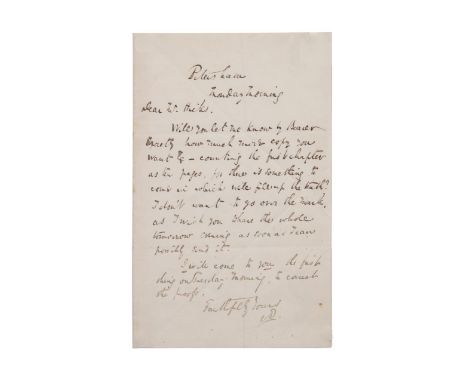 Petersham
Monday Morning
Dear Mr. Hicks.
Will you let me know by Bearer
exactly how much more copy you
want – counting the first chapter
as ten pages, for there is something to
come in which will fill up the
I don't want to go over the mark,
as I wish you to have the whole
tomorrow evening as soon as I can
possibly end it.
I will come to you the first
thing on Tuesday Morning to correct
the proofs.
Faithfully Yours
CD